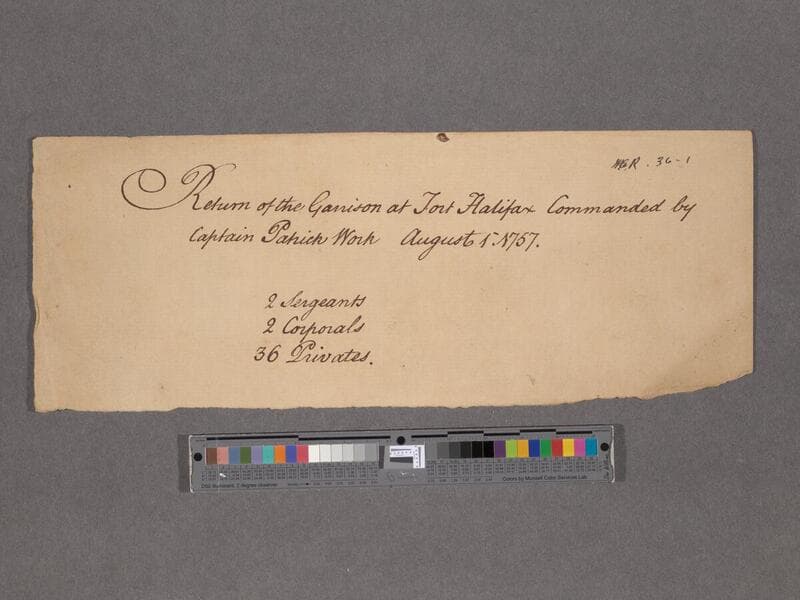 MGR. 36-1
Return of the Garrison at Fort Halifax Commanded by
Captain Patrick Work August 1. 1757.
2 Sergeants
2 Corporals
36 Privates.
D50 Illuminant, 2 degree observer
Colors by Munsell Color Services Lab